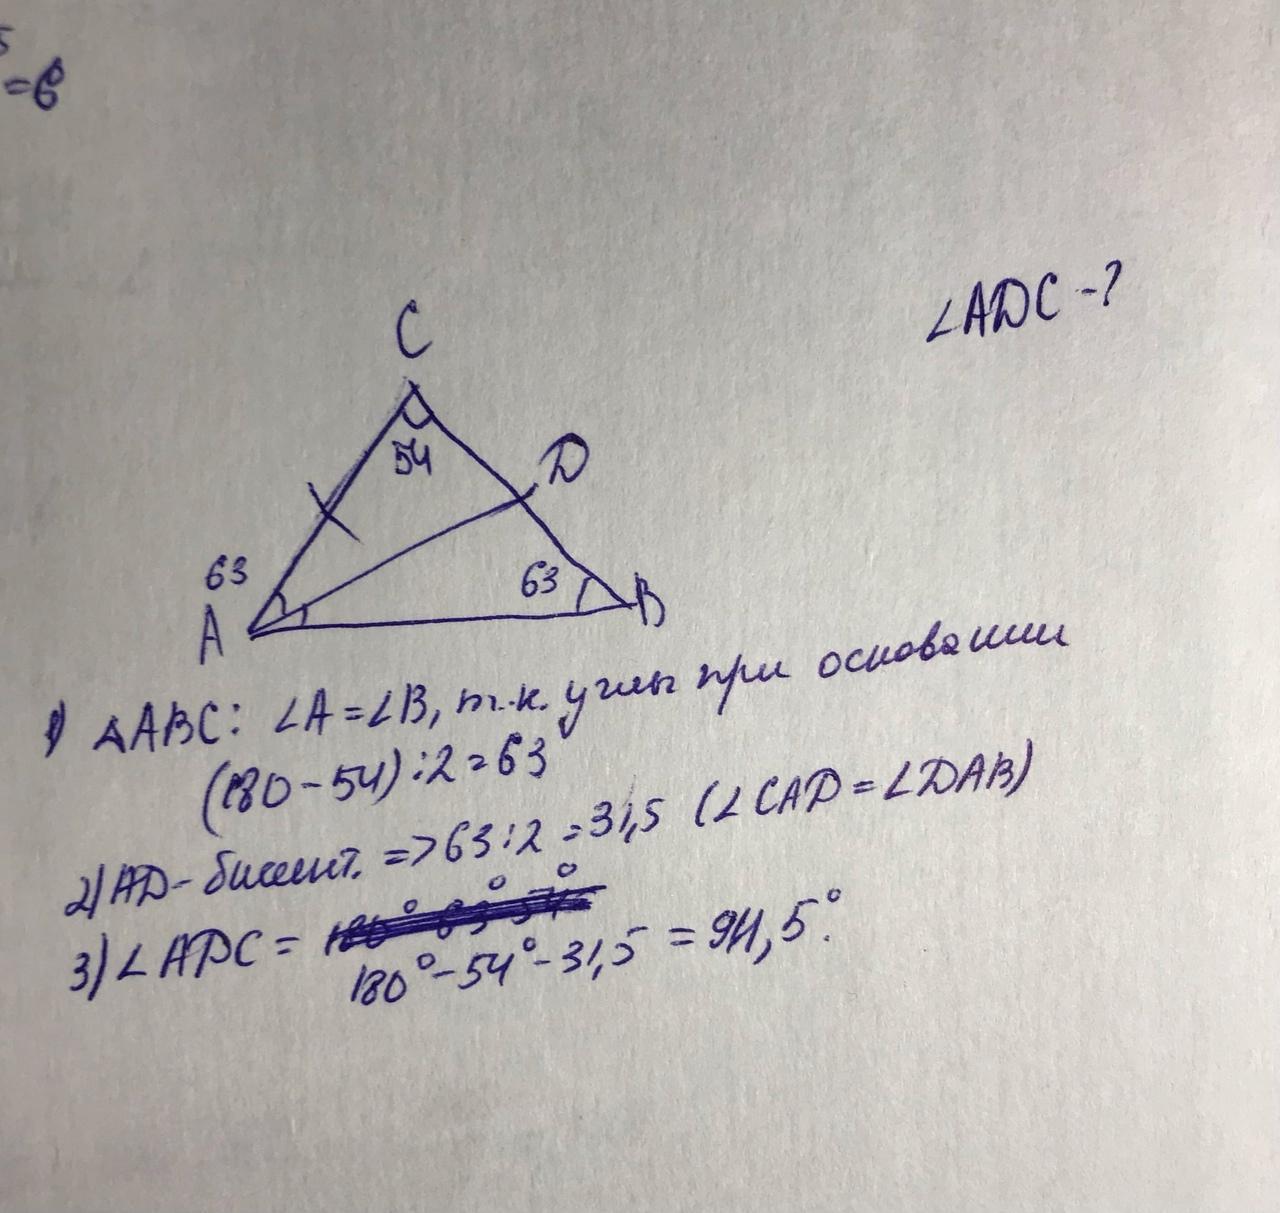 5
=6
∠ADC -?
C
54
D
63
63
A
B
1) △ABC: ∠A=∠B, т.к. углы при основании
(180-54):2=63
2) AD-биссект. => 63:2=31,5 (∠CAD=∠DAB)
3) ∠ADC =
180°-54°-31,5 = 94,5°.